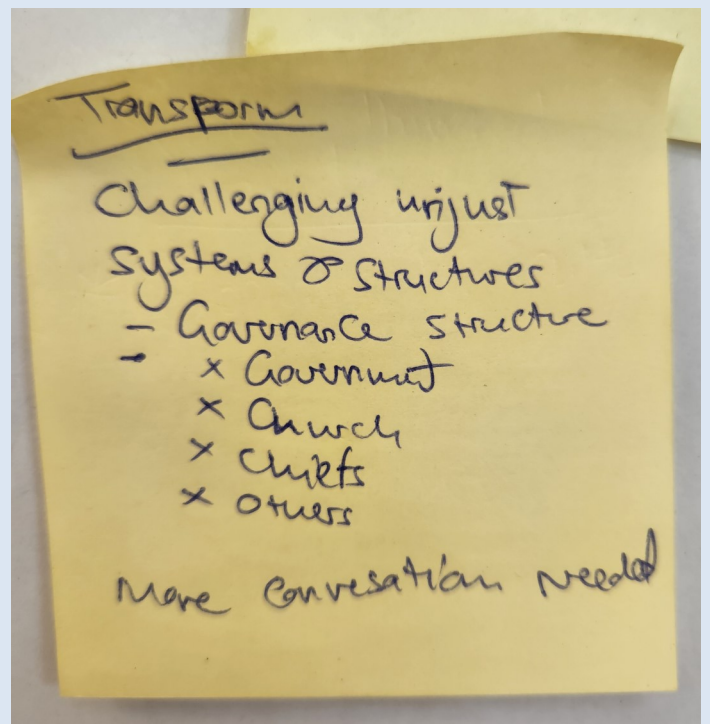 Transform
Challenging unjust
systems & structures
- Governance structure
-
x Government
x Church
x Chiefs
x Others
More convesation needed